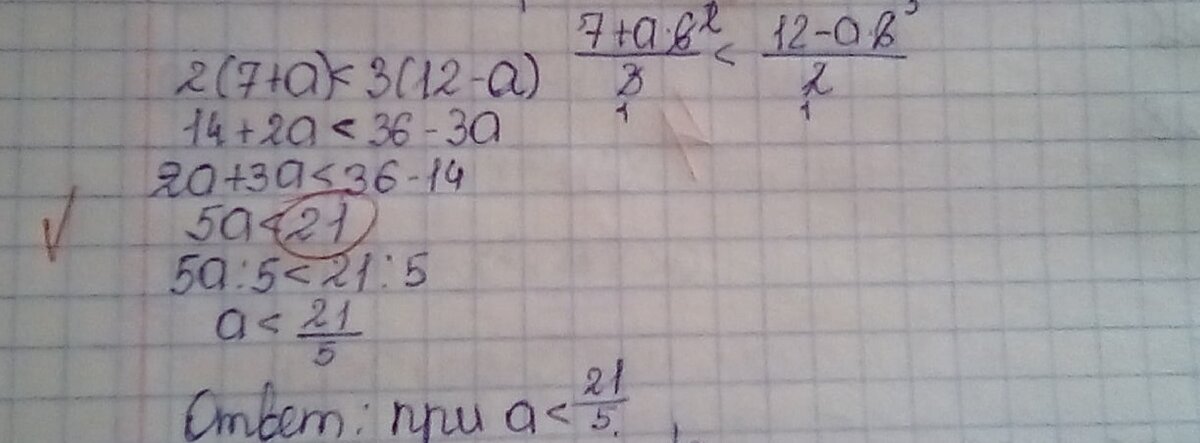 7+a·6² / 3 < 12-a·6³ / 2
1 1
2(7+a)<3(12-a)
14+2a<36-3a
2a+3a<36-14
5a<21
5a:5<21:5
a<21/5
Ответ: при a<21/5.